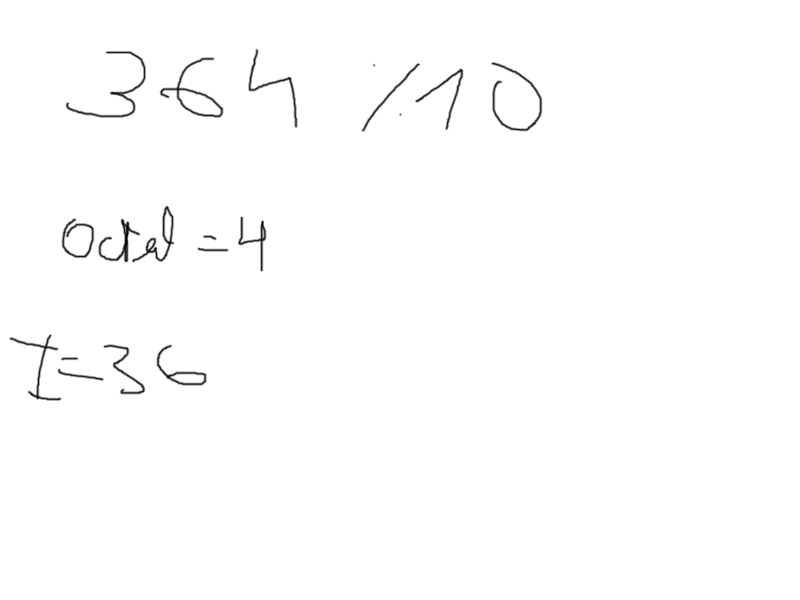 364 % 10
octal = 4
I = 36